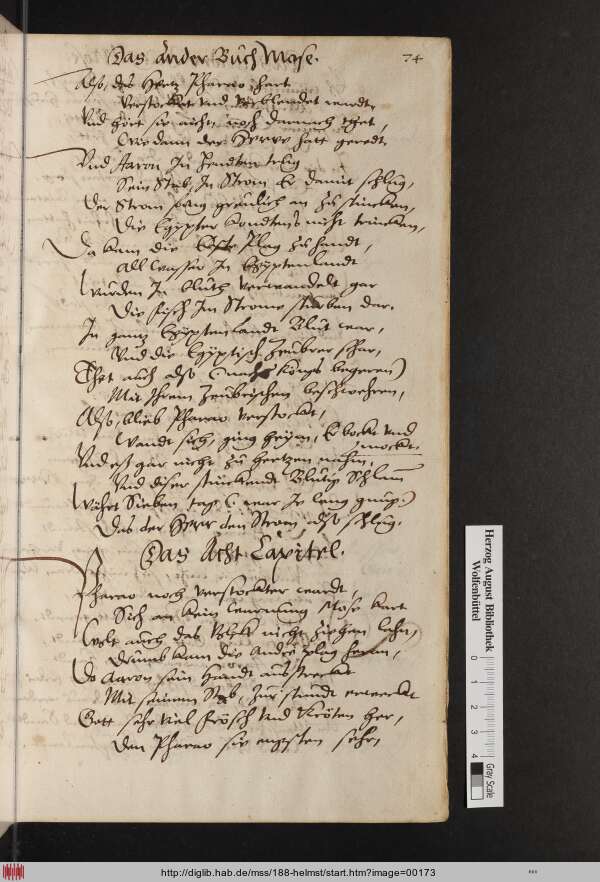 Das ander Buch Mose.
74
Also, das Hertz Pharao hart
Verstocket und Verblendet wardt,
Und hört sie nicht, noch darnach thet,
Wie dann der Herre hatt geredt,
Und Aaron In
Sein Stab, In Strom Er damit schlug,
Der Strom fieng greulich an zu stincken,
Die Egypter kondtens nicht trincken,
Da kam die Erste Plag zu handt,
All Wasser In Egyptenlandt
Wurden In blutt verwandelt gar
Die fisch Im Strome sturben dar.
In gantz Egyptenlandt Blut war,
Und die Egyptisch Zeubrer schar,
Thet auch also (nach Königs begeren)
Mit Ihrem Zeubrischen beschweren,
Also, blieb Pharao verstockt,
Wandt sich, ging heym, Er bockt und
mockt.
Und es gar nicht zu hertzen nahm,
Und diser stinckend Blutig Schlam
Wehret Sieben tag (war Ir lang gnug)
Das der Herr den Strom also schlug.
Das Acht Capitel.
Pharao noch verstockter wardt,
Sich an kein warnung Mose kart
Wolt auch das Volck nicht ziehen lahn,
Drumb kam die Ander plag heran,
Do Aaron sein Handt ausstreckt
Mit seinem Stab, Zur stundt erweckt
Gott sehr viel Frösch und Kröten her,
Den Pharao sie engsten sehr,
Herzog August Bibliothek
Wolfenbüttel
0 1 2 3 4
Gray Scale
http://diglib.hab.de/mss/188-helmst/start.htm?image=00173